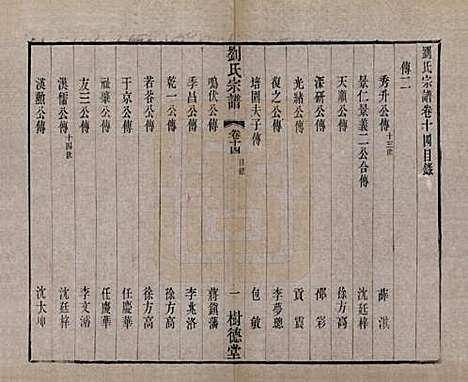 劉氏宗譜卷十四目錄
傳二
秀升公傳 十三世 薛淇
景仁景義二公合傳 沈廷梓
天順公傳 徐方高
深研公傳 鄒彩
光緒公傳 貢震
復之公傳 李夢驄
培園夫子傳 包敏
劉氏宗譜 卷十四 目錄 一 樹德堂
鳴伏公傳 蔣鎮藩
季昌公傳 李兆洛
乾一公傳 徐方高
若谷公傳 徐方高
于京公傳 任慶華
社稟公傳 任慶華
友三公傳 李文濬
漢儒公傳 十四世 沈廷梓
漢勳公傳 沈大坤